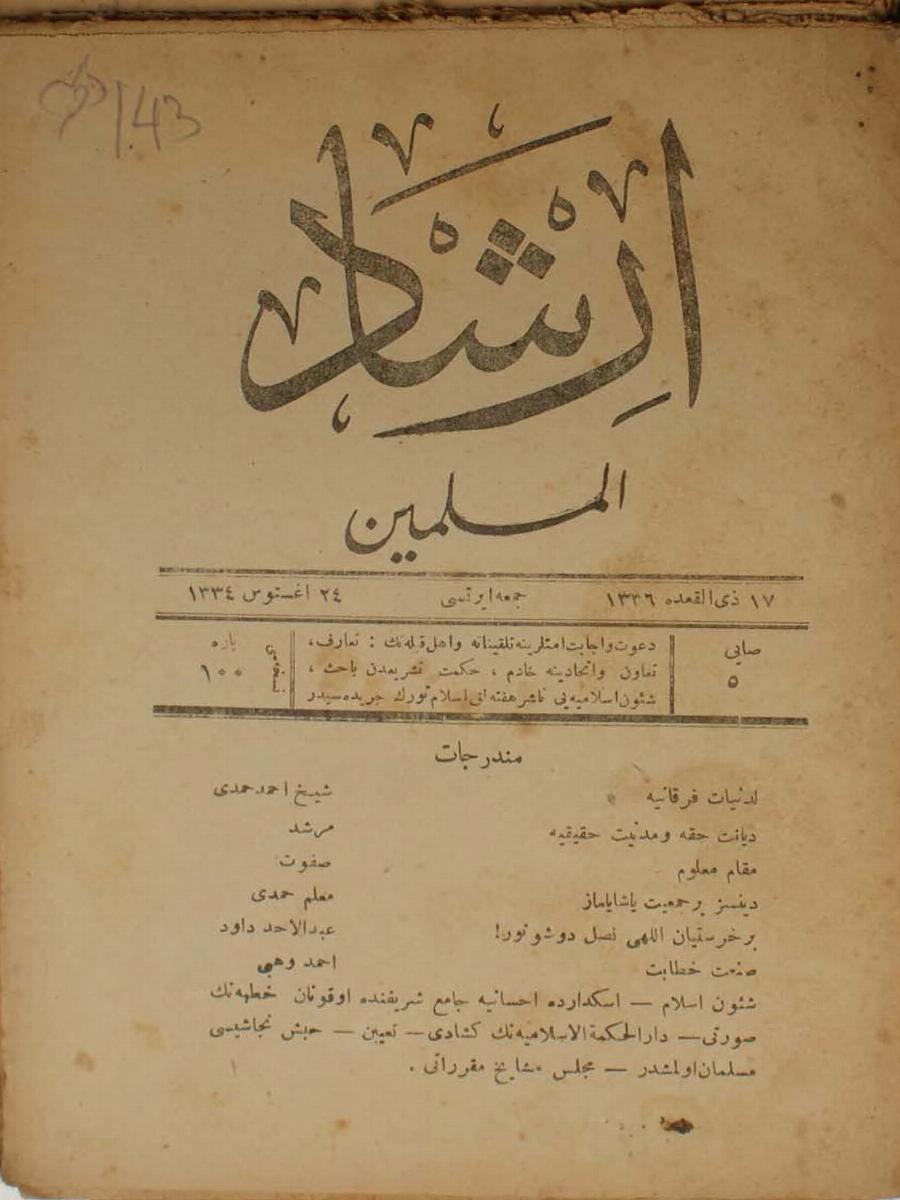 143
ارشاد
المسلمين
١٧ ذى القعده ١٣٣٦ جمعه ايرتسى ٢٤ اغستوس ١٣٣٤
صايى ٥
دعوت واجابت امتلرينه تلقيناته واهل قبله‌نك : تعارف ،
تعاون واتحادينه خادم ، حكمت تشريعدن باحث ،
شئون اسلاميه‌يى ناشر هفته‌لق اسلام تورك جريده‌سيدر
نسخه‌سى ١٠٠ پاره
مندرجات
لدنيات فرقانيه شيخ احمد حمدى
ديانت حقه ومدنيت حقيقيه مرشد
مقام معلوم صفوت
دينسز بر جمعيت ياشاياماز معلم حمدى
بر خرستيان اللهى نصل دوشونور! عبدالاحد داود
صنعت خطابت احمد وهبى
شئون اسلام — اسكدارده احسانيه جامع شريفنده اوقونان خطبه‌نك
صورتى — دارالحكمة الاسلاميه‌نك كشادى — تعيين — حبش نجاشيسى
مسلمان اولمشدر — مجلس مشايخ مقرراتى .